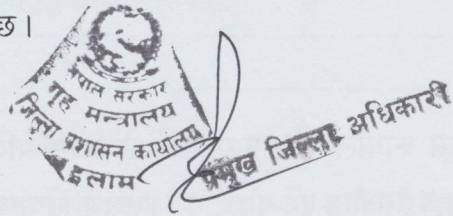 छ।
नेपाल सरकार
गृह मन्त्रालय
जिल्ला प्रशासन कार्यालय
इलाम
प्रमुख जिल्ला अधिकारी